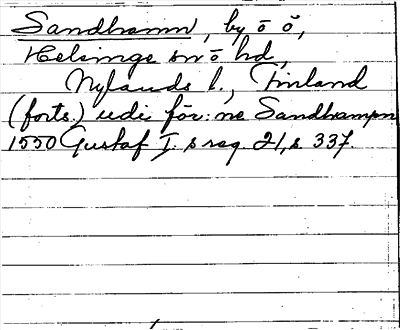 Sandhamn, by o ö,
Helsinge sn o hd,
Nylands l., Finland
(forts.) udi för:ne Sandhampn
1550 Gustaf I:s reg. 21, s 337.